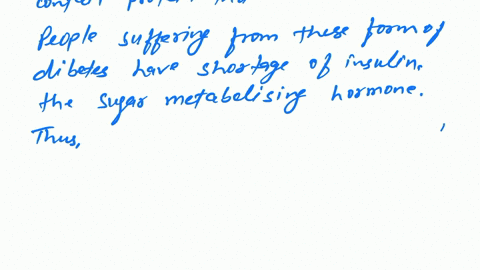 People suffering from these form of
dibetes have shortage of insulin,
the sugar metabolising hormone.
Thus,